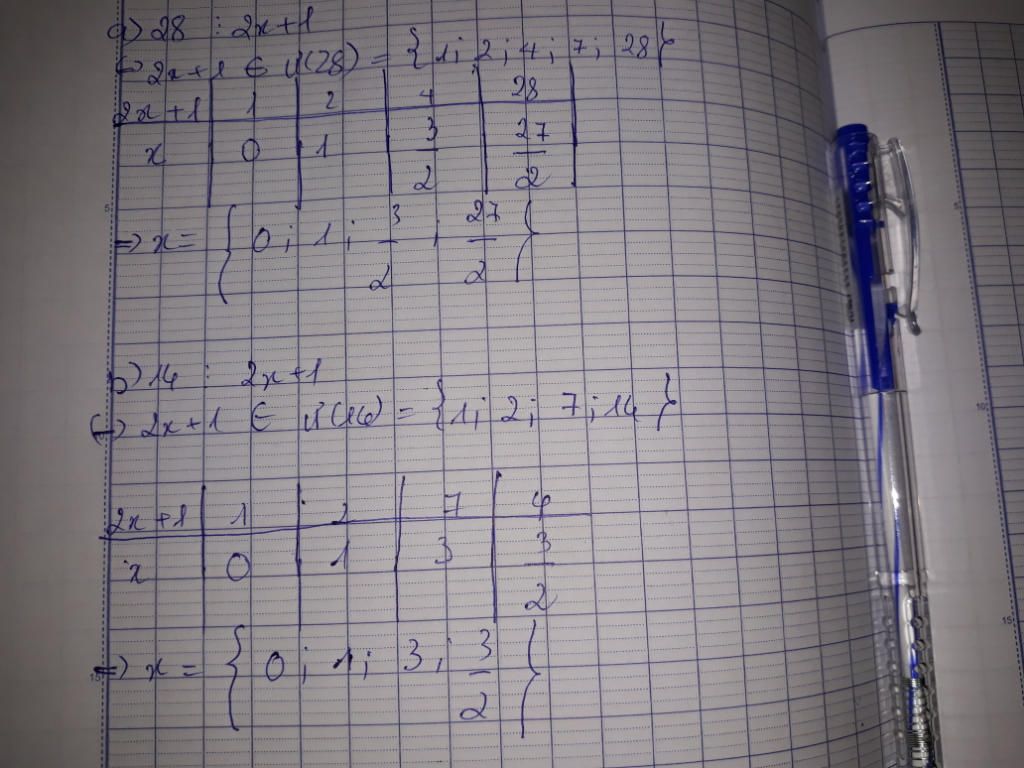 a) 28 : 2x+1
(-) 2x+1 ∈ Ư(28) = {1; 2; 4; 7; 28}
2x+1 | 1 | 2 | 4 | 28
x | 0 | 1 | 3/2 | 27/2
=> x = {0; 1; 3/2; 27/2}
b) 14 : 2x+1
(-) 2x+1 ∈ Ư(14) = {1; 2; 7; 14}
2x+1 | 1 | 2 | 7 | 4
x | 0 | 1 | 3 | 3/2
=> x = {0; 1; 3; 3/2}
5
10
15
5
15